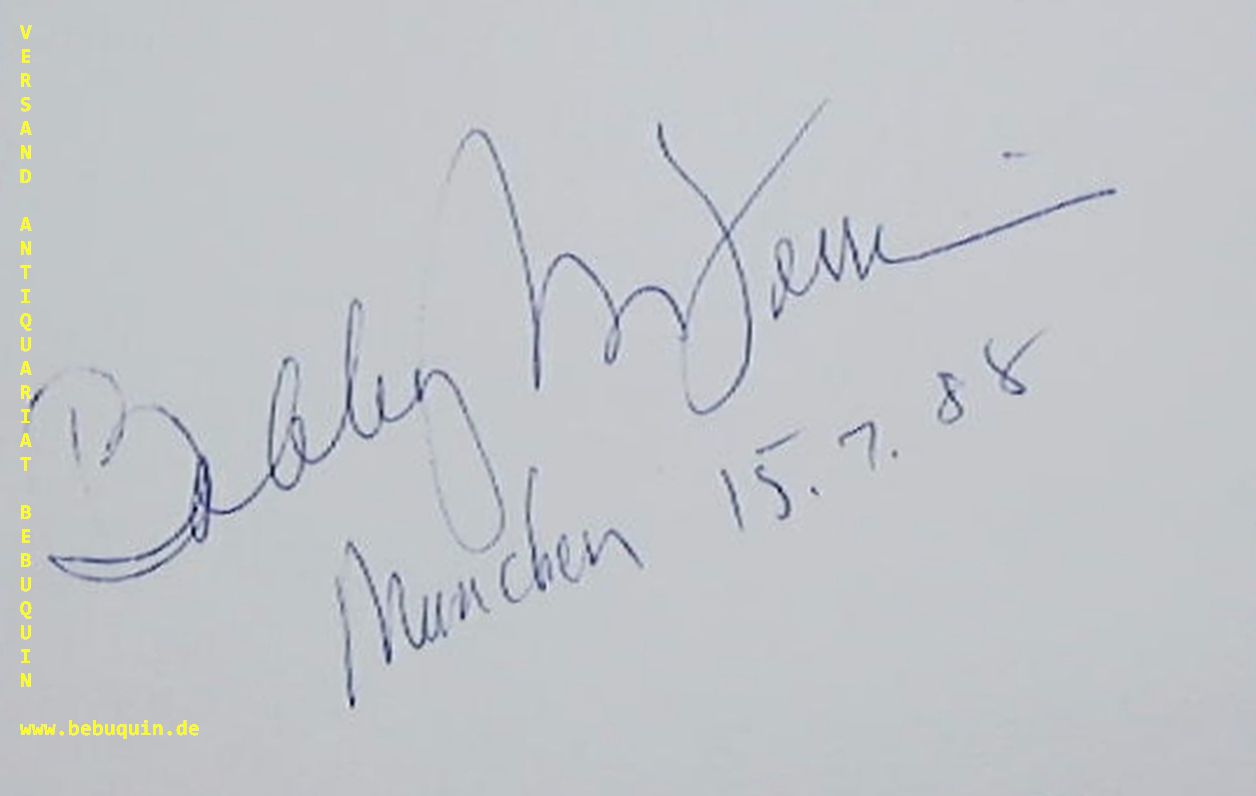 VERSAND ANTIQUARIAT BEBUQUIN
Bobby McFerrin
Munchen 15.7.88
www.bebuquin.de